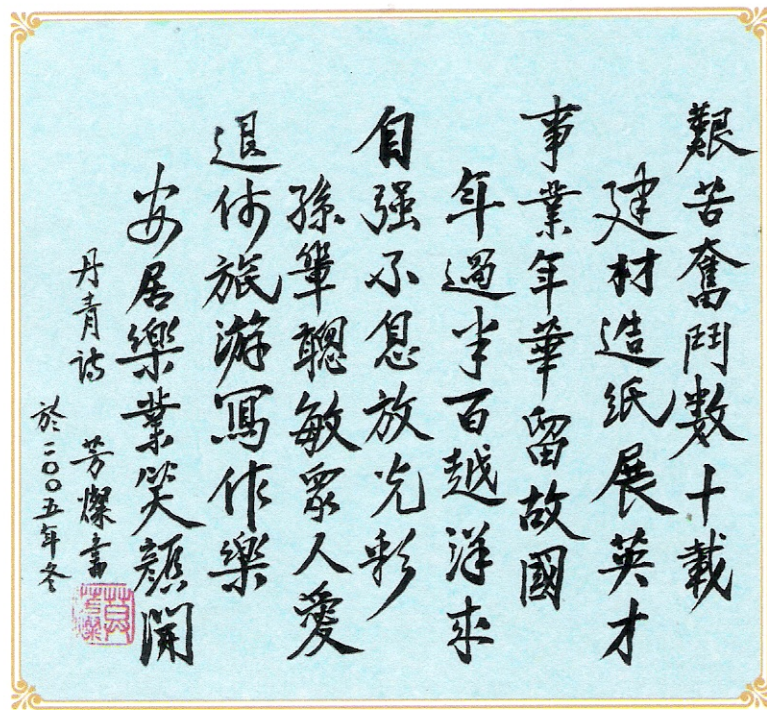 艱苦奮鬥数十載
建材造紙展英才
事業年華留故國
年過半百越洋來
自强不息放光彩
孫輩聰敏眾人愛
退休旅游寫作樂
安居樂業笑顏開
丹青詩 芳燦書
於二〇〇五年冬
黄芳燦